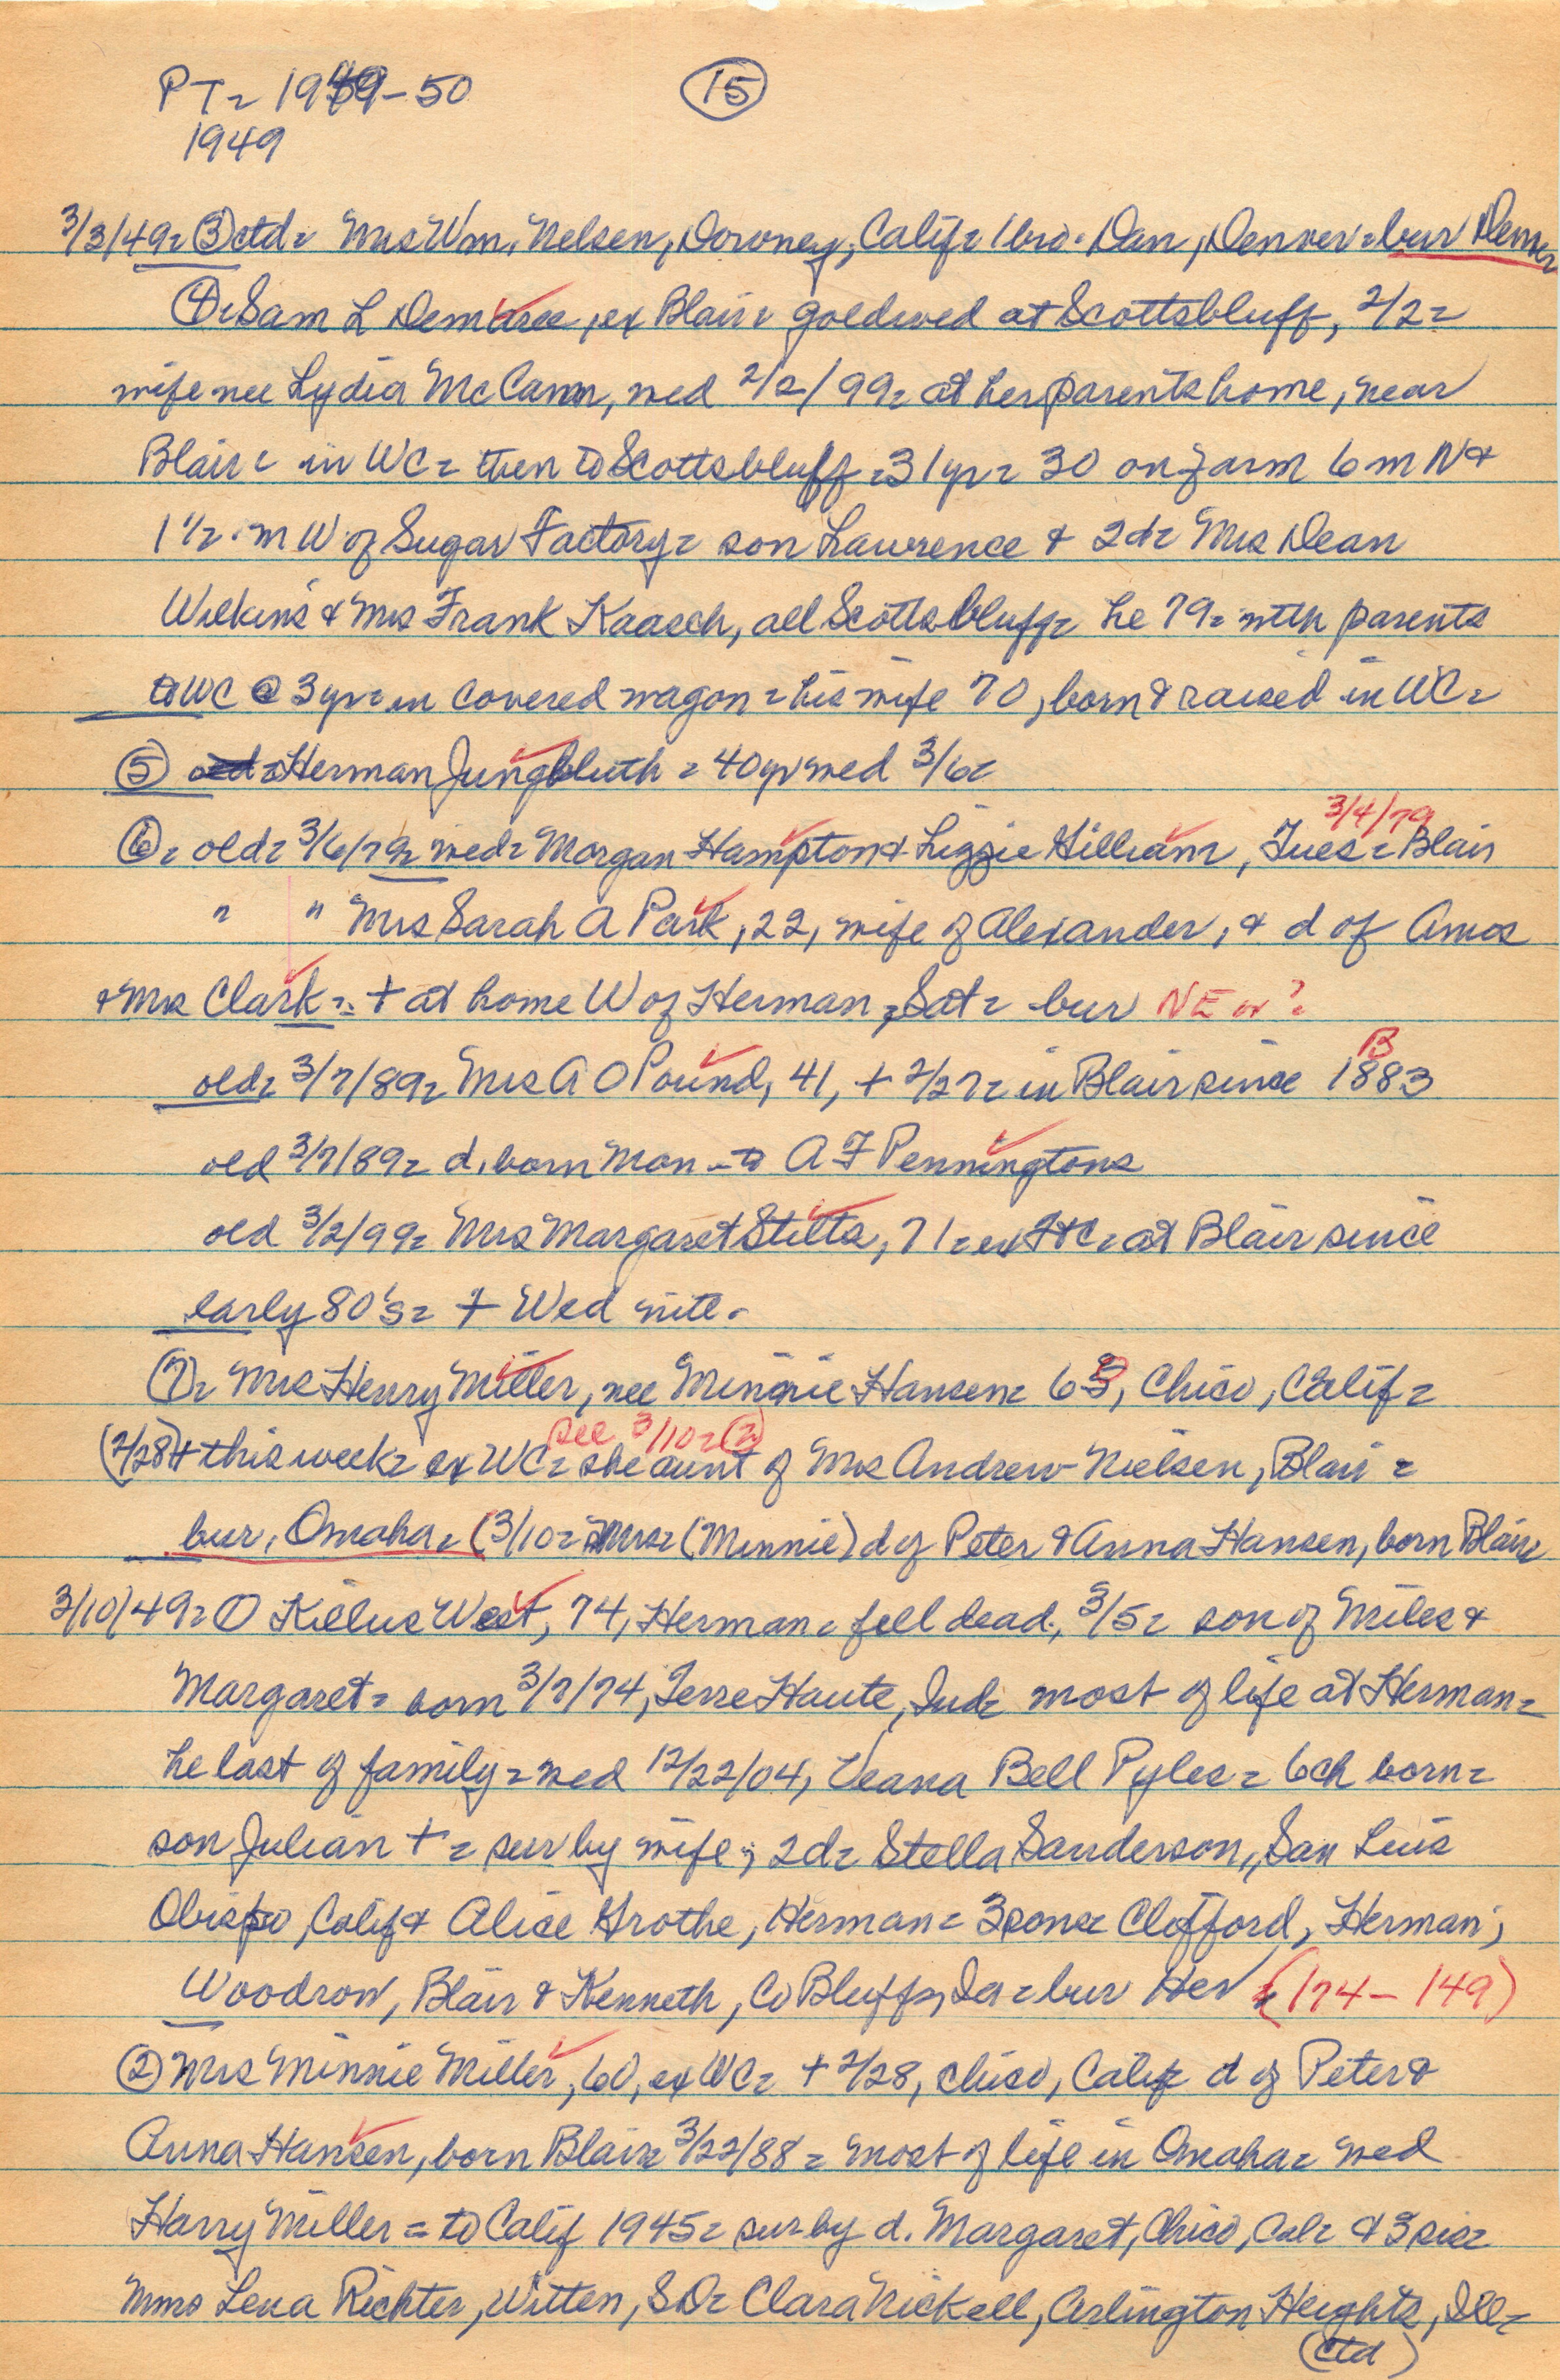 PT= 1949-50 (15)
1949
3/3/49= (3) ctd= Mrs Wm. Nelsen, Downey, Calif= 1 bro. Dan, Denver= bur Denver
(4)= Sam L Demaree, ex Blair= goldwed at Scottsbluff, 2/2=
wife nee Lydia McCann, wed 2/2/99= at her parents home, near
Blair= in WC= then to Scottsbluff= 31yr= 30 on farm 6 m N &
1 1/2 . m W of Sugar Factory= son Lawrence & 2d= Mrs Dean
Wilkins & Mrs Frank Kaasch, all Scottsbluff= he 79= with parents
to WC @ 3yr= in covered wagon= his wife 70, born & raised in WC=
(5) Herman Jungbluth = 40yr wed 3/6=
3/4/79
(6)= old= 3/6/79= wed= Morgan Hampton & Lizzie Gilliam, Tues= Blair
" " Mrs Sarah A Park, 22, wife of Alexander, & d of Amos
& Mrs Clark=. + at home W of Herman, Sat= bur NE or ?=
B
old= 3/7/89= Mrs A O Pound, 41, + 2/27= in Blair since 1883
old 3/7/89= d. born Mon - to A F Penningtons
old 3/2/99= Mrs Margaret Stilts, 71= ex FtC= at Blair since
early 80's= + Wed nite.
(7)= Mrs Henry Miller, nee Minnie Hansen= 60, Chico, Calif=
see 3/10= (2)
(2/28) + this week= ex WC= she aunt of Mrs Andrew Nielsen, Blair=
bur, Omaha= (3/10= Mrs= (Minnie) d of Peter & Anna Hansen, born Blair=
3/10/49= (1) Killus West, 74, Herman= fell dead, 3/5= son of Miles &
Margaret= born 3/7/74, Terre Haute, Ind= most of life at Herman=
he last of family= wed 12/22/04, Veana Bell Pyles= 6ch born=
son Julian += sur by wife; 2d= Stella Sanderson, San Luis
Obispo, Calif & Alice Grothe, Herman= 3sons= Clifford, Herman;
Woodrow, Blair & Kenneth, Co Bluffs, Ia= bur Her (174-149)
(2) Mrs Minnie Miller, 60, ex WC= + 2/28, Chico, Calif= d of Peter &
Anna Hansen, born Blair= 3/22/88= most of life in Omaha= wed
Harry Miller= to Calif 1945= sur by d. Margaret, Chico, Cal= & 3 sis=
Mms Lena Richter, Witten, SD= Clara Nickell, Arlington Heights, Ill=
(ctd)